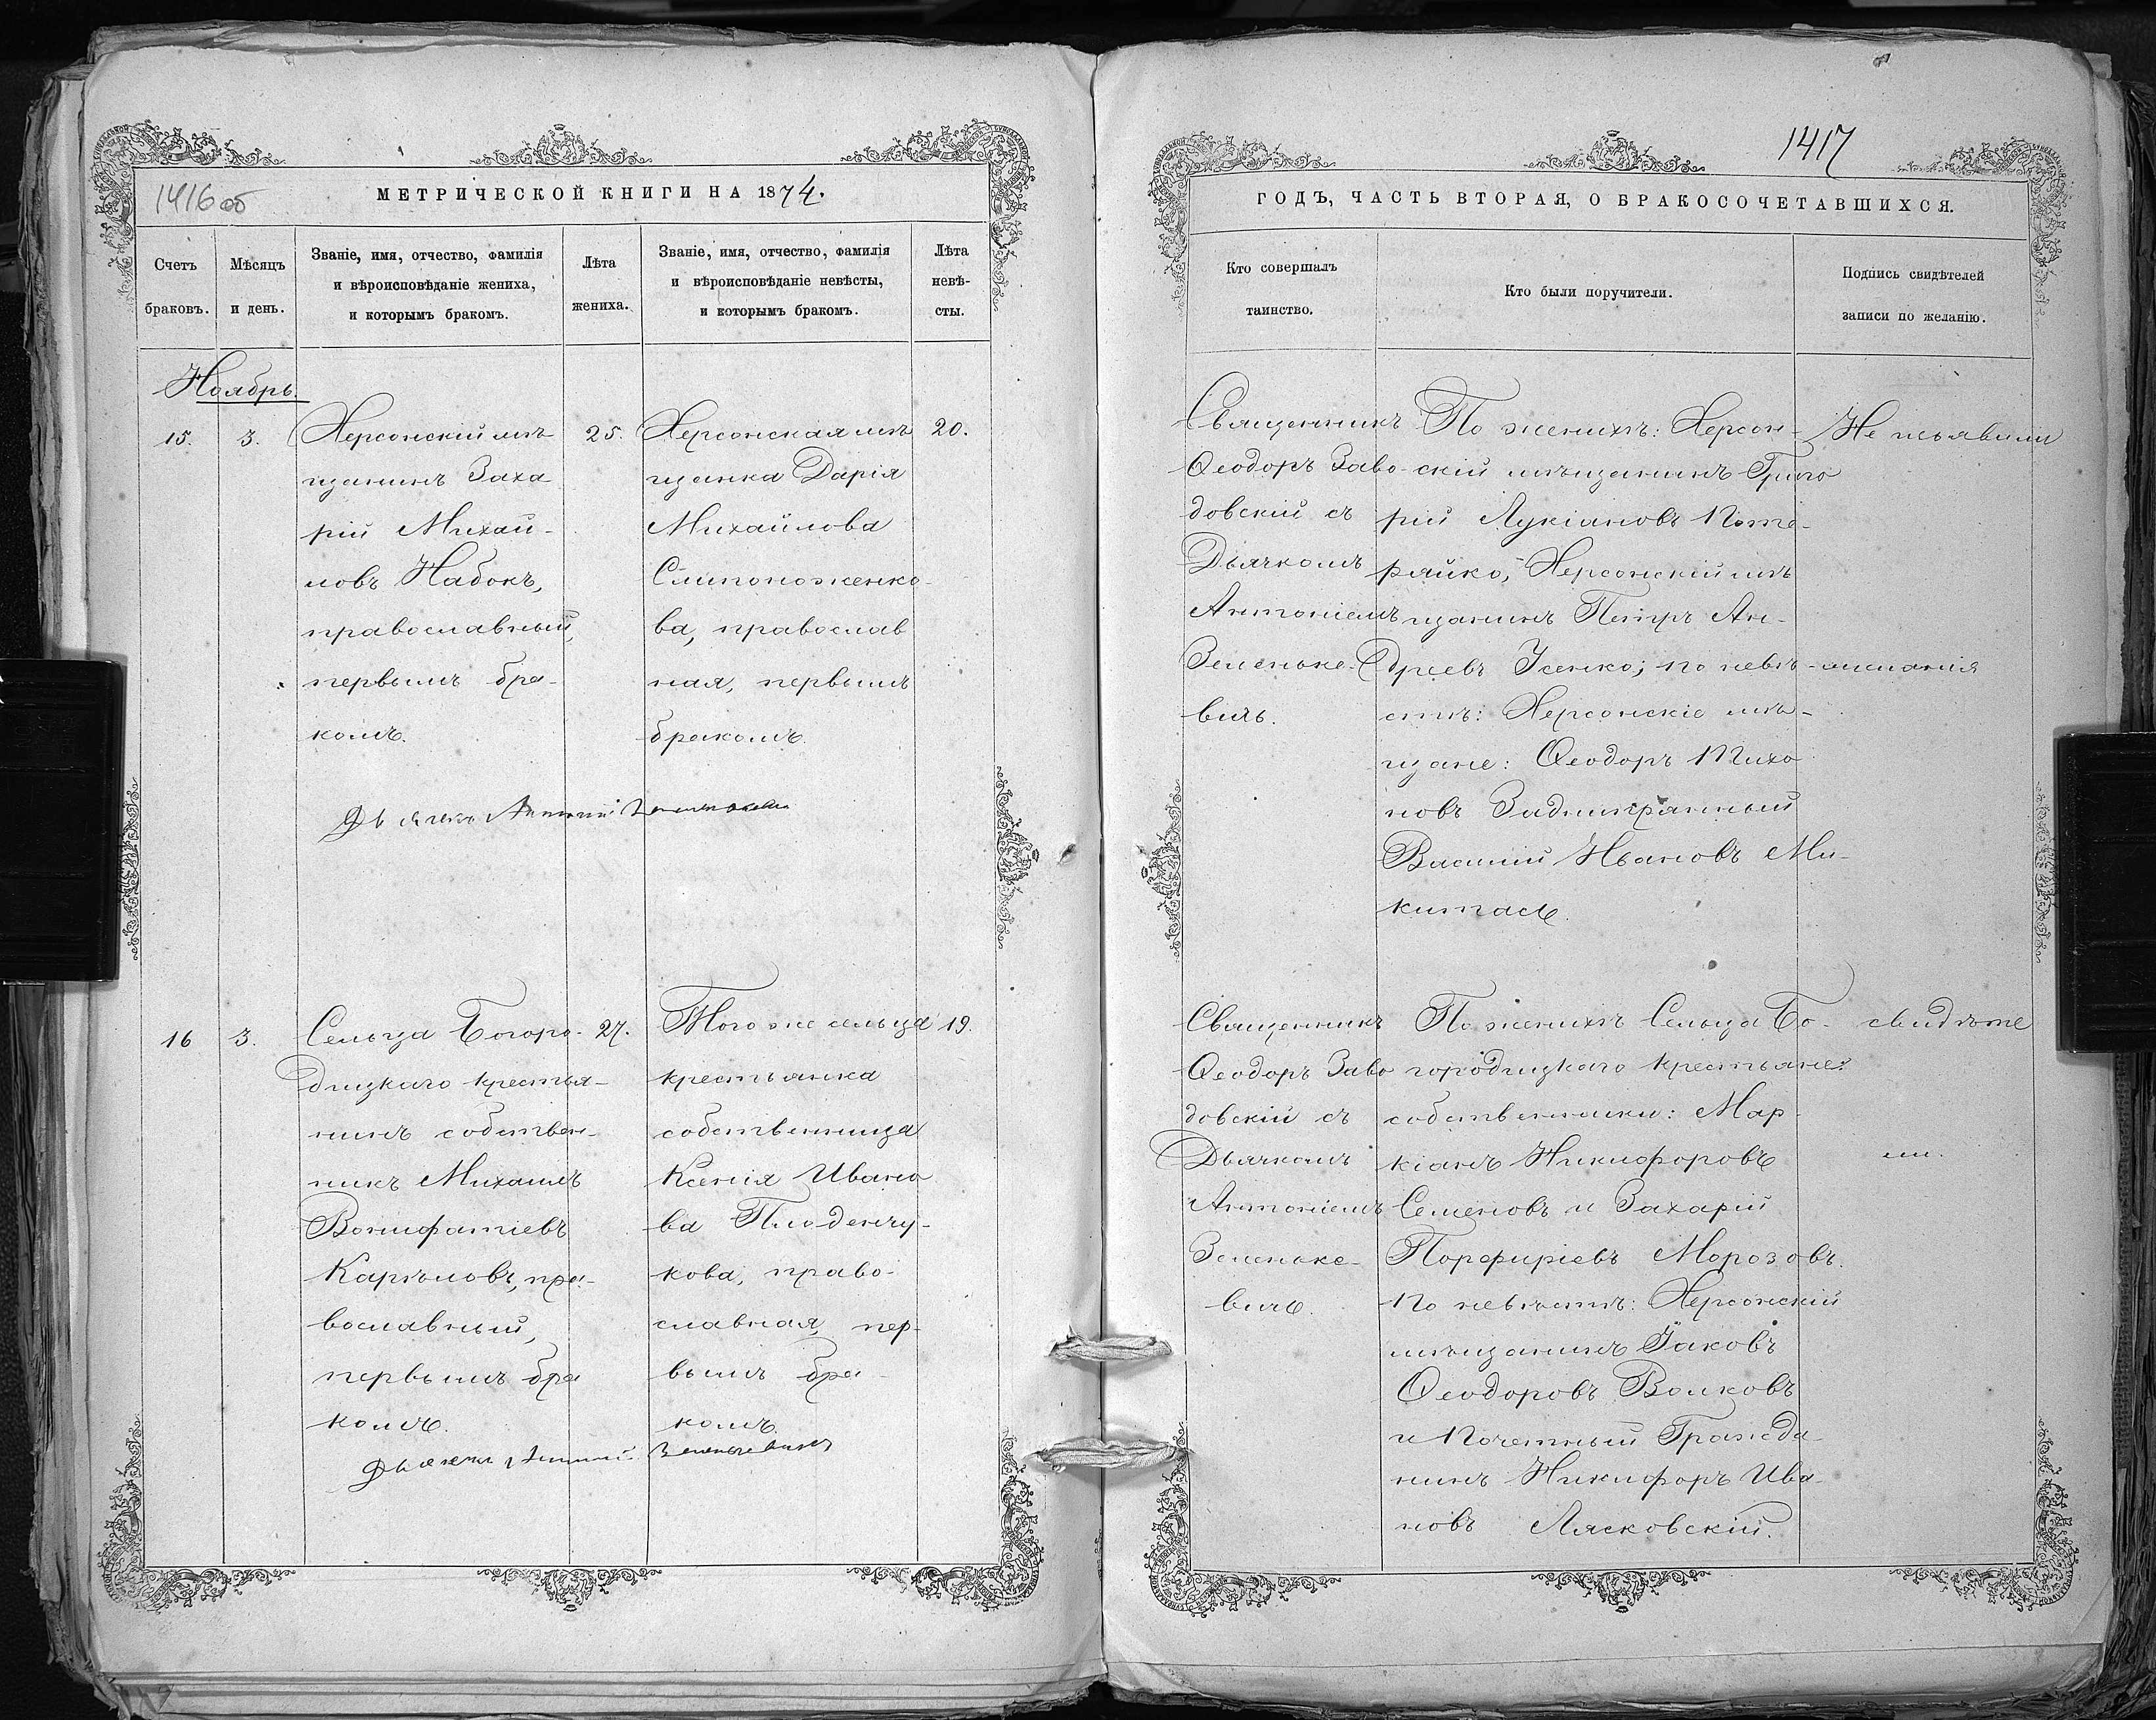 1416 об
МЕТРИЧЕСКОЙ КНИГИ НА 1874.
Счетъ
браковъ.
Мѣсяцъ
и день.
Званіе, имя, отчество, фамилія
и вѣроисповѣданіе жениха,
и которымъ бракомъ.
Лѣта
жениха.
Званіе, имя, отчество, фамилія
и вѣроисповѣданіе невѣсты,
и которымъ бракомъ.
Лѣта
невѣ-
сты.
Ноябрь.
15.
3.
Херсонскій мѣ
щанинъ Заха
рій Михай-
ловъ Набокъ,
православный,
первымъ бра-
комъ.
25.
Херсонская мѣ
щанка Дарія
Михайлова
Слипоноженко-
ва, православ
ная, первымъ
бракомъ.
20.
Дьячекъ Антоній Зеленкевичъ
16
3.
Сельца Богоро-
дицкаго крестья-
нинъ собствен-
никъ Михаилъ
Вонифатіевъ
Карѣловъ, пра-
вославный,
первымъ бра
комъ.
27.
Того же сельца
крестьянка
собственница
Ксенія Ивано
ва Плоденчу-
кова, право-
славная, пер-
вымъ бра-
комъ.
19.
Дьячекъ Антоній Зеленкевичъ
1417
ГОДЪ, ЧАСТЬ ВТОРАЯ, О БРАКОСОЧЕТАВШИХСЯ.
Кто совершалъ
таинство.
Кто были поручители.
Подпись свидѣтелей
записи по желанію.
Священникъ
Ѳеодоръ Заво-
довскій съ
Дьячкомъ
Антоніемъ
Зеленке-
вичъ.
По женихѣ: Херсон-
скій мѣщанинъ Григо
рій Лукіановъ Поте-
ряйко, Херсонскій мѣ
щанинъ Петръ Ан-
дреевъ Усенко; по невѣ-
стѣ: Херсонскіе мѣ-
щане: Ѳеодоръ Тихо
новъ
Василій Ивановъ Ми-
китась.
Не изъявили
желанія
Священникъ
Ѳеодоръ Заво
довскій съ
Дьячкомъ
Антоніемъ
Зеленке-
вичъ.
По женихѣ Сельца Бо-
городицкаго крестьяне:
собственники: Мар-
кіанъ Никифоровъ
Семеновъ и Захарій
Порфиріевъ Морозовъ.
По невѣстѣ: Херсонскій
мѣщанинъ Іаковъ
Ѳеодоровъ Волковъ
и Почетный Гражда-
нинъ Никифоръ Ива-
новъ Лясковскій.
свидѣте
ли.